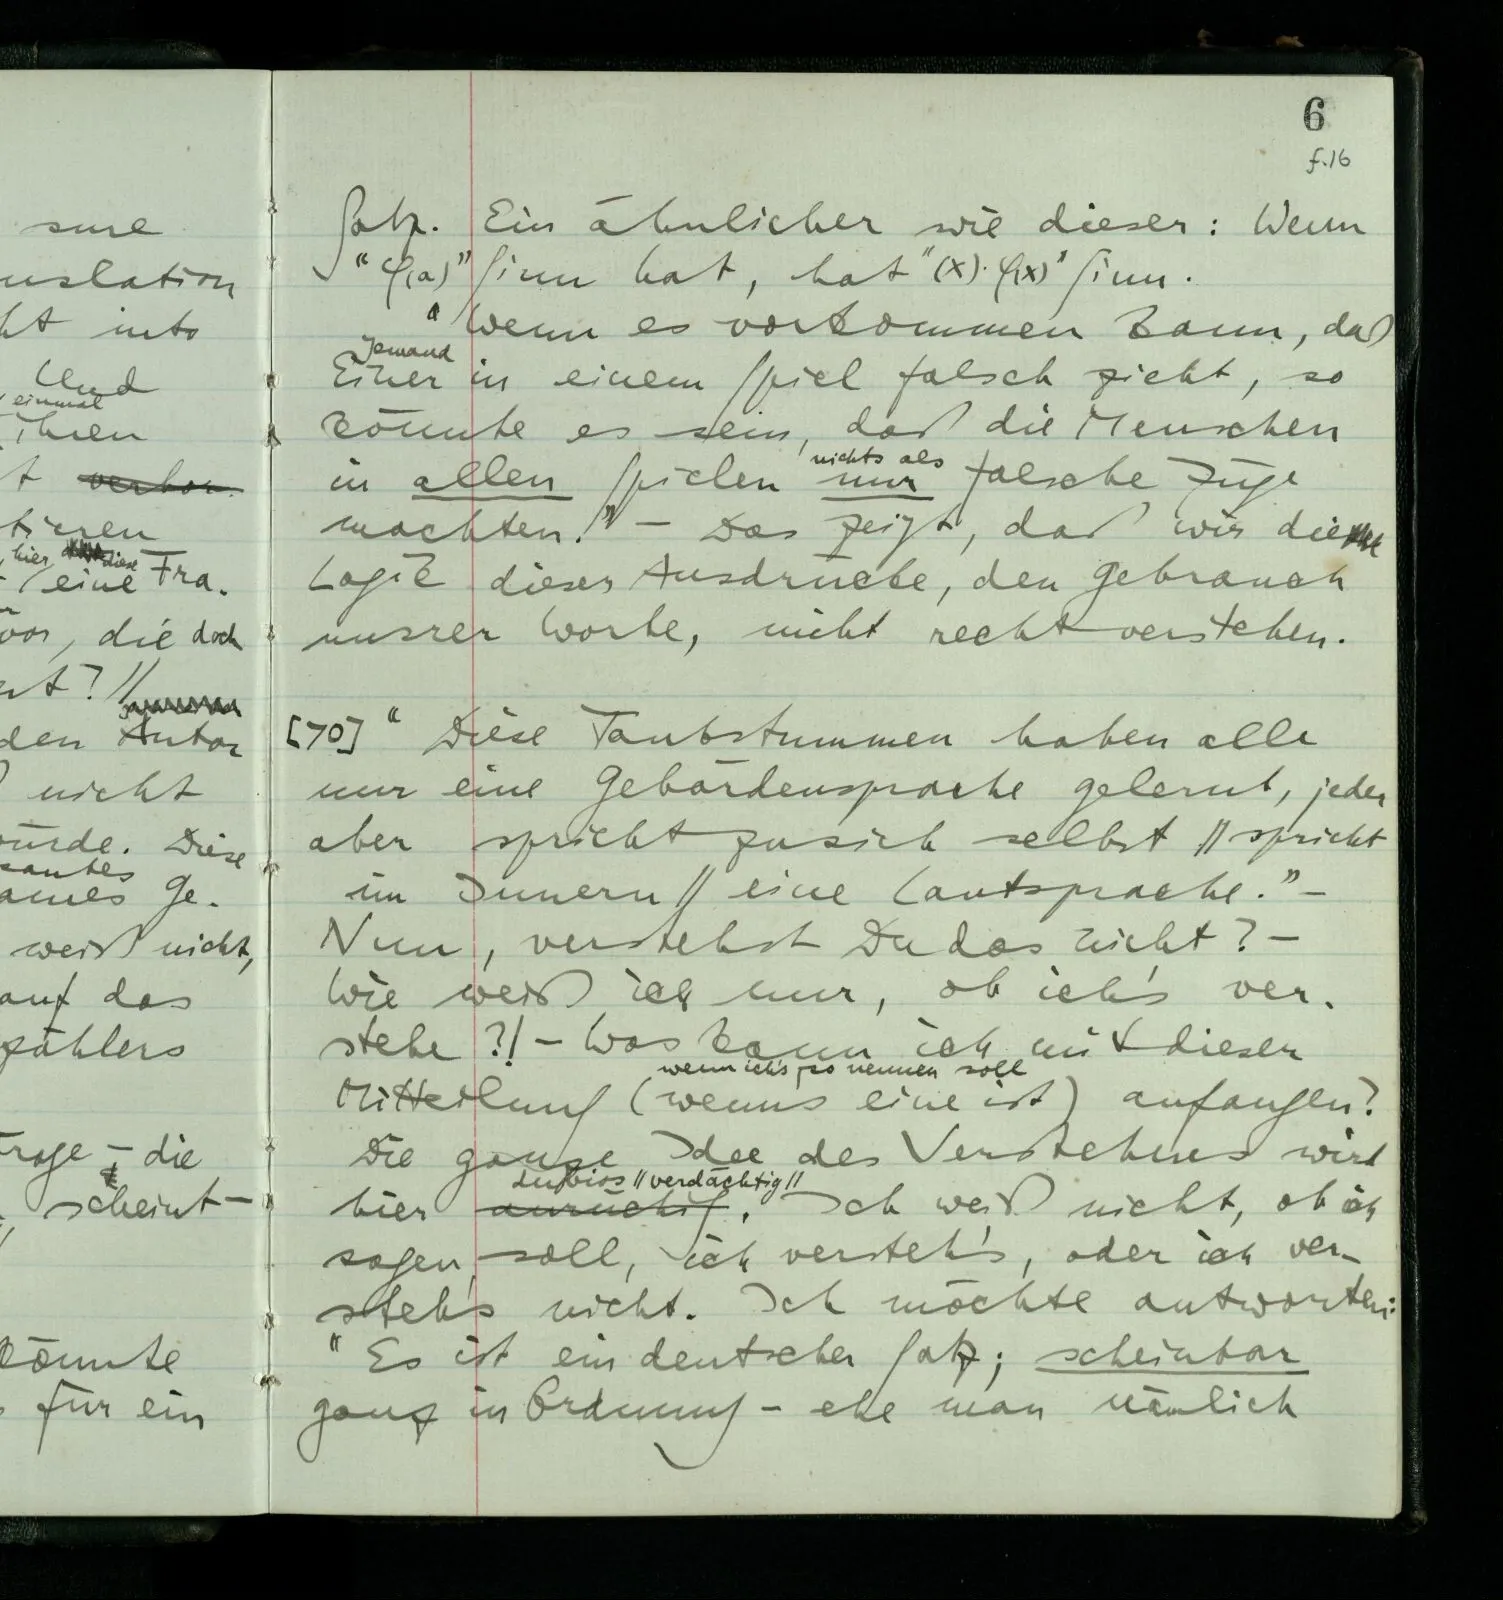 sure
nslation
ht into
Und
einmal
ihren
t verbor.
tieren
hier diese
eine Fra.
vor, die doch
rt? //
den Autor
nicht
würde. Diese
santes
ames Ge.
weiß nicht,
auf das
zählers
Frage – die
scheint –
könnte
für ein
6
f.16
Satz. Ein ähnlicher wie dieser: Wenn
"φ(a)" Sinn hat, hat "(x).φ(x)" Sinn.
"Wenn es vorkommen kann, daß
Jemand
Einer in einem Spiel falsch zieht, so
könnte es sein, daß die Menschen
nichts als
in allen Spielen nur falsche Züge
machten." – Das zeigt, daß wir die
Logik dieser Ausdrücke, den Gebrauch
unsrer Worte, nicht recht verstehen.
[70] "Diese Taubstummen haben alle
nur eine Gebärdensprache gelernt, jeder
aber spricht zu sich selbst // spricht
im Innern // eine Lautsprache." –
Nun, verstehst Du das nicht? –
Wie weiß ich nur, ob ich's ver.
stehe?! – Was kann ich mit dieser
wenn ich's so nennen soll
Mitteilung (wenns eine ist) anfangen?
Die ganze Idee des Verstehens wird
dubios // verdächtig //
hier anrüchig. Ich weiß nicht, ob ich
sagen soll, ich versteh's, oder ich ver-
steh's nicht. Ich möchte antworten:
"Es ist ein deutscher Satz; scheinbar
ganz in Ordnung – ehe man nämlich